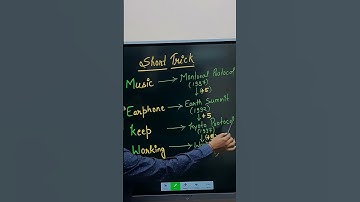 Short Trick
Music → Montreal Protocol
(1987)
↓ +5
Earphone → Earth Summit
(1992)
↓ +5
Keep → Kyoto Protocol
(1997)
↓ +5
Working →